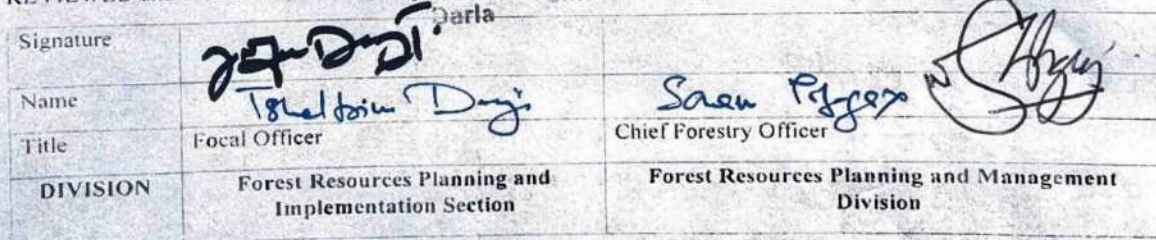 REVIEWED
Darla
Signature
Name
Title Focal Officer Chief Forestry Officer
DIVISION Forest Resources Planning and Implementation Section Forest Resources Planning and Management Division